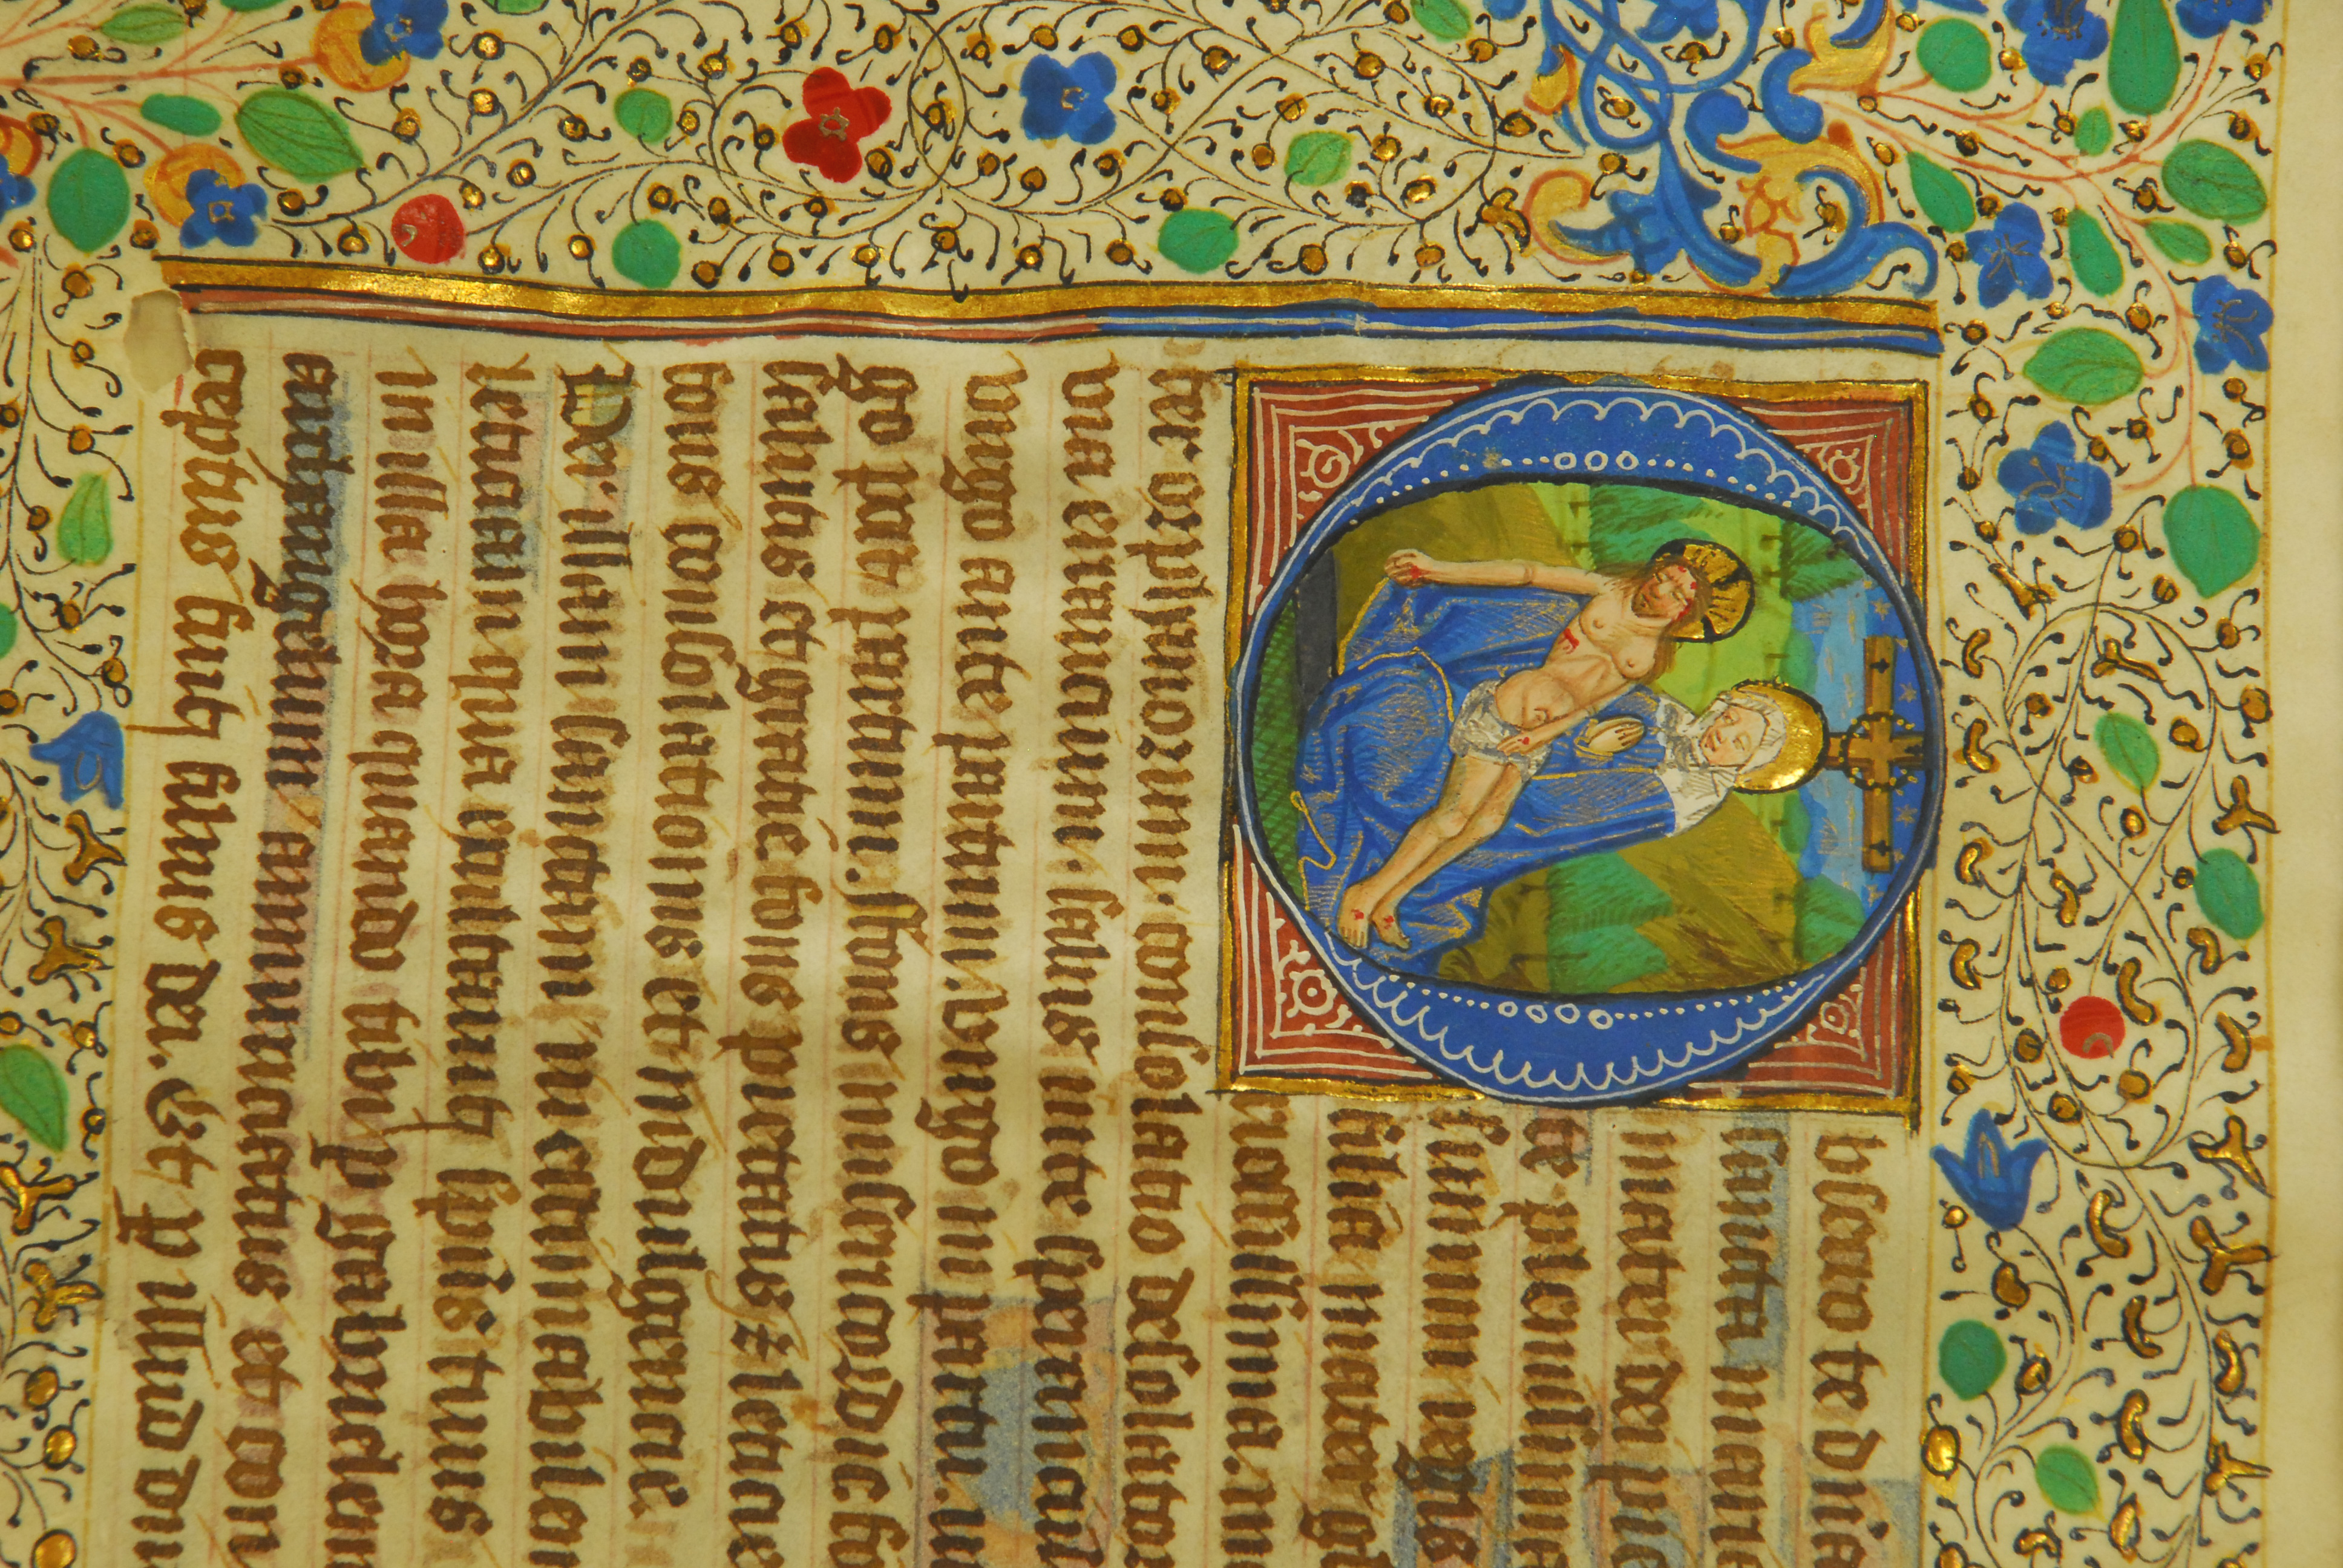 bsecro te dnia
sancta marie
mater dei pie
te plenissima
summi regis
filia mater gl
riosissima. m
ter orphanorum. consolatio desolator
via errantium. salus in te sperantiu
virgo ante partum. virgo in partu. vi
go post partum. ffons misericordie fo
salutis et gratie fons pietatis z leticie
fons consolationis et indulgencie.
Per illam sanctam inestimabilem
leticiam qua exultauit spiritus tuus
in illa hora quando tibi p gabrielem
archangelum annunciatus et con
ceptus fuit filius dei. Et p illud diui